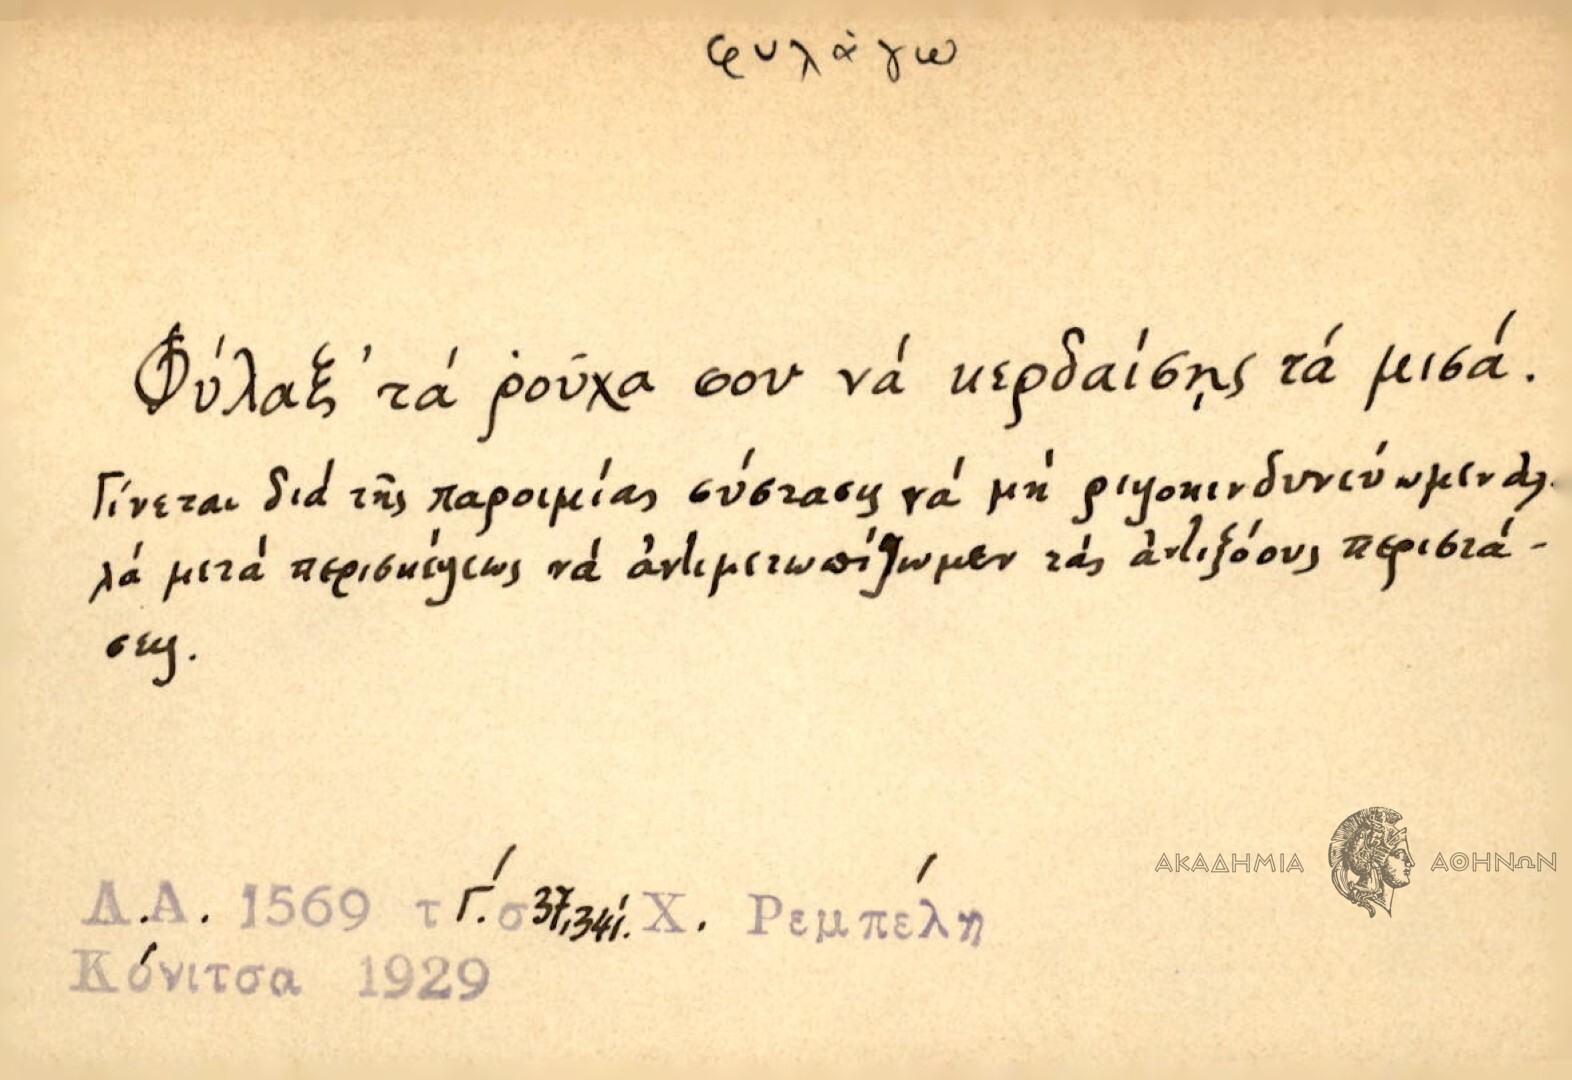 φυλάγω
Φύλαξ' τά ῥοῦχα σου νά κερδαίσῃς τά μισά.
Γίνεται διά τῆς παροιμίας σύστασις νά μή ριψοκινδυνεύωμεν ἀλ-
λά μετά περισκέψεως νά ἀντιμετωπίζωμεν τάς ἀντιξόους περιστά-
σεις.
ΑΚΑΔΗΜΙΑ ΑΘΗΝΩΝ
Λ.Α. 1569 τ Γ́. σ 37,341. Χ. Ρεμπέλη
Κόνιτσα 1929